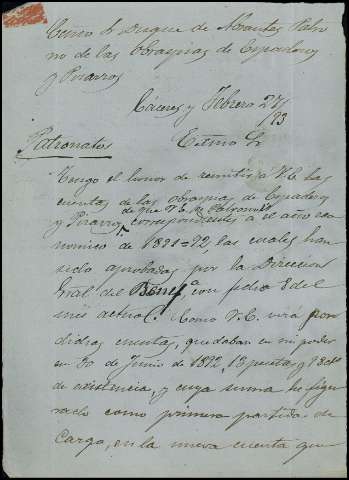 Exmo S Duque de Abrantes Patro
no de las Obraspias de Espadero
y Pizarros
Cáceres y Febrero 27/
/93
Patronatos
Exmo Sr
Tengo el honor de remitir a V.E. las
cuentas de las obraspias de Espadero
y Pizarros de que V.E. es Patrono
correspondientes a el año eco
nomico de 1891=92, las cuales han
sido aprobadas por la Direccion
Gral del Benefª, con fecha 8 del
mes actual. Como V.E. verá por
didhas cuentas, quedaban en mi poder
en 30 de Junio de 1892, 13 pesetas y 8
de existencia, y cuya suma he figu
rado como primera partida de
Cargo, en la nueva cuenta que